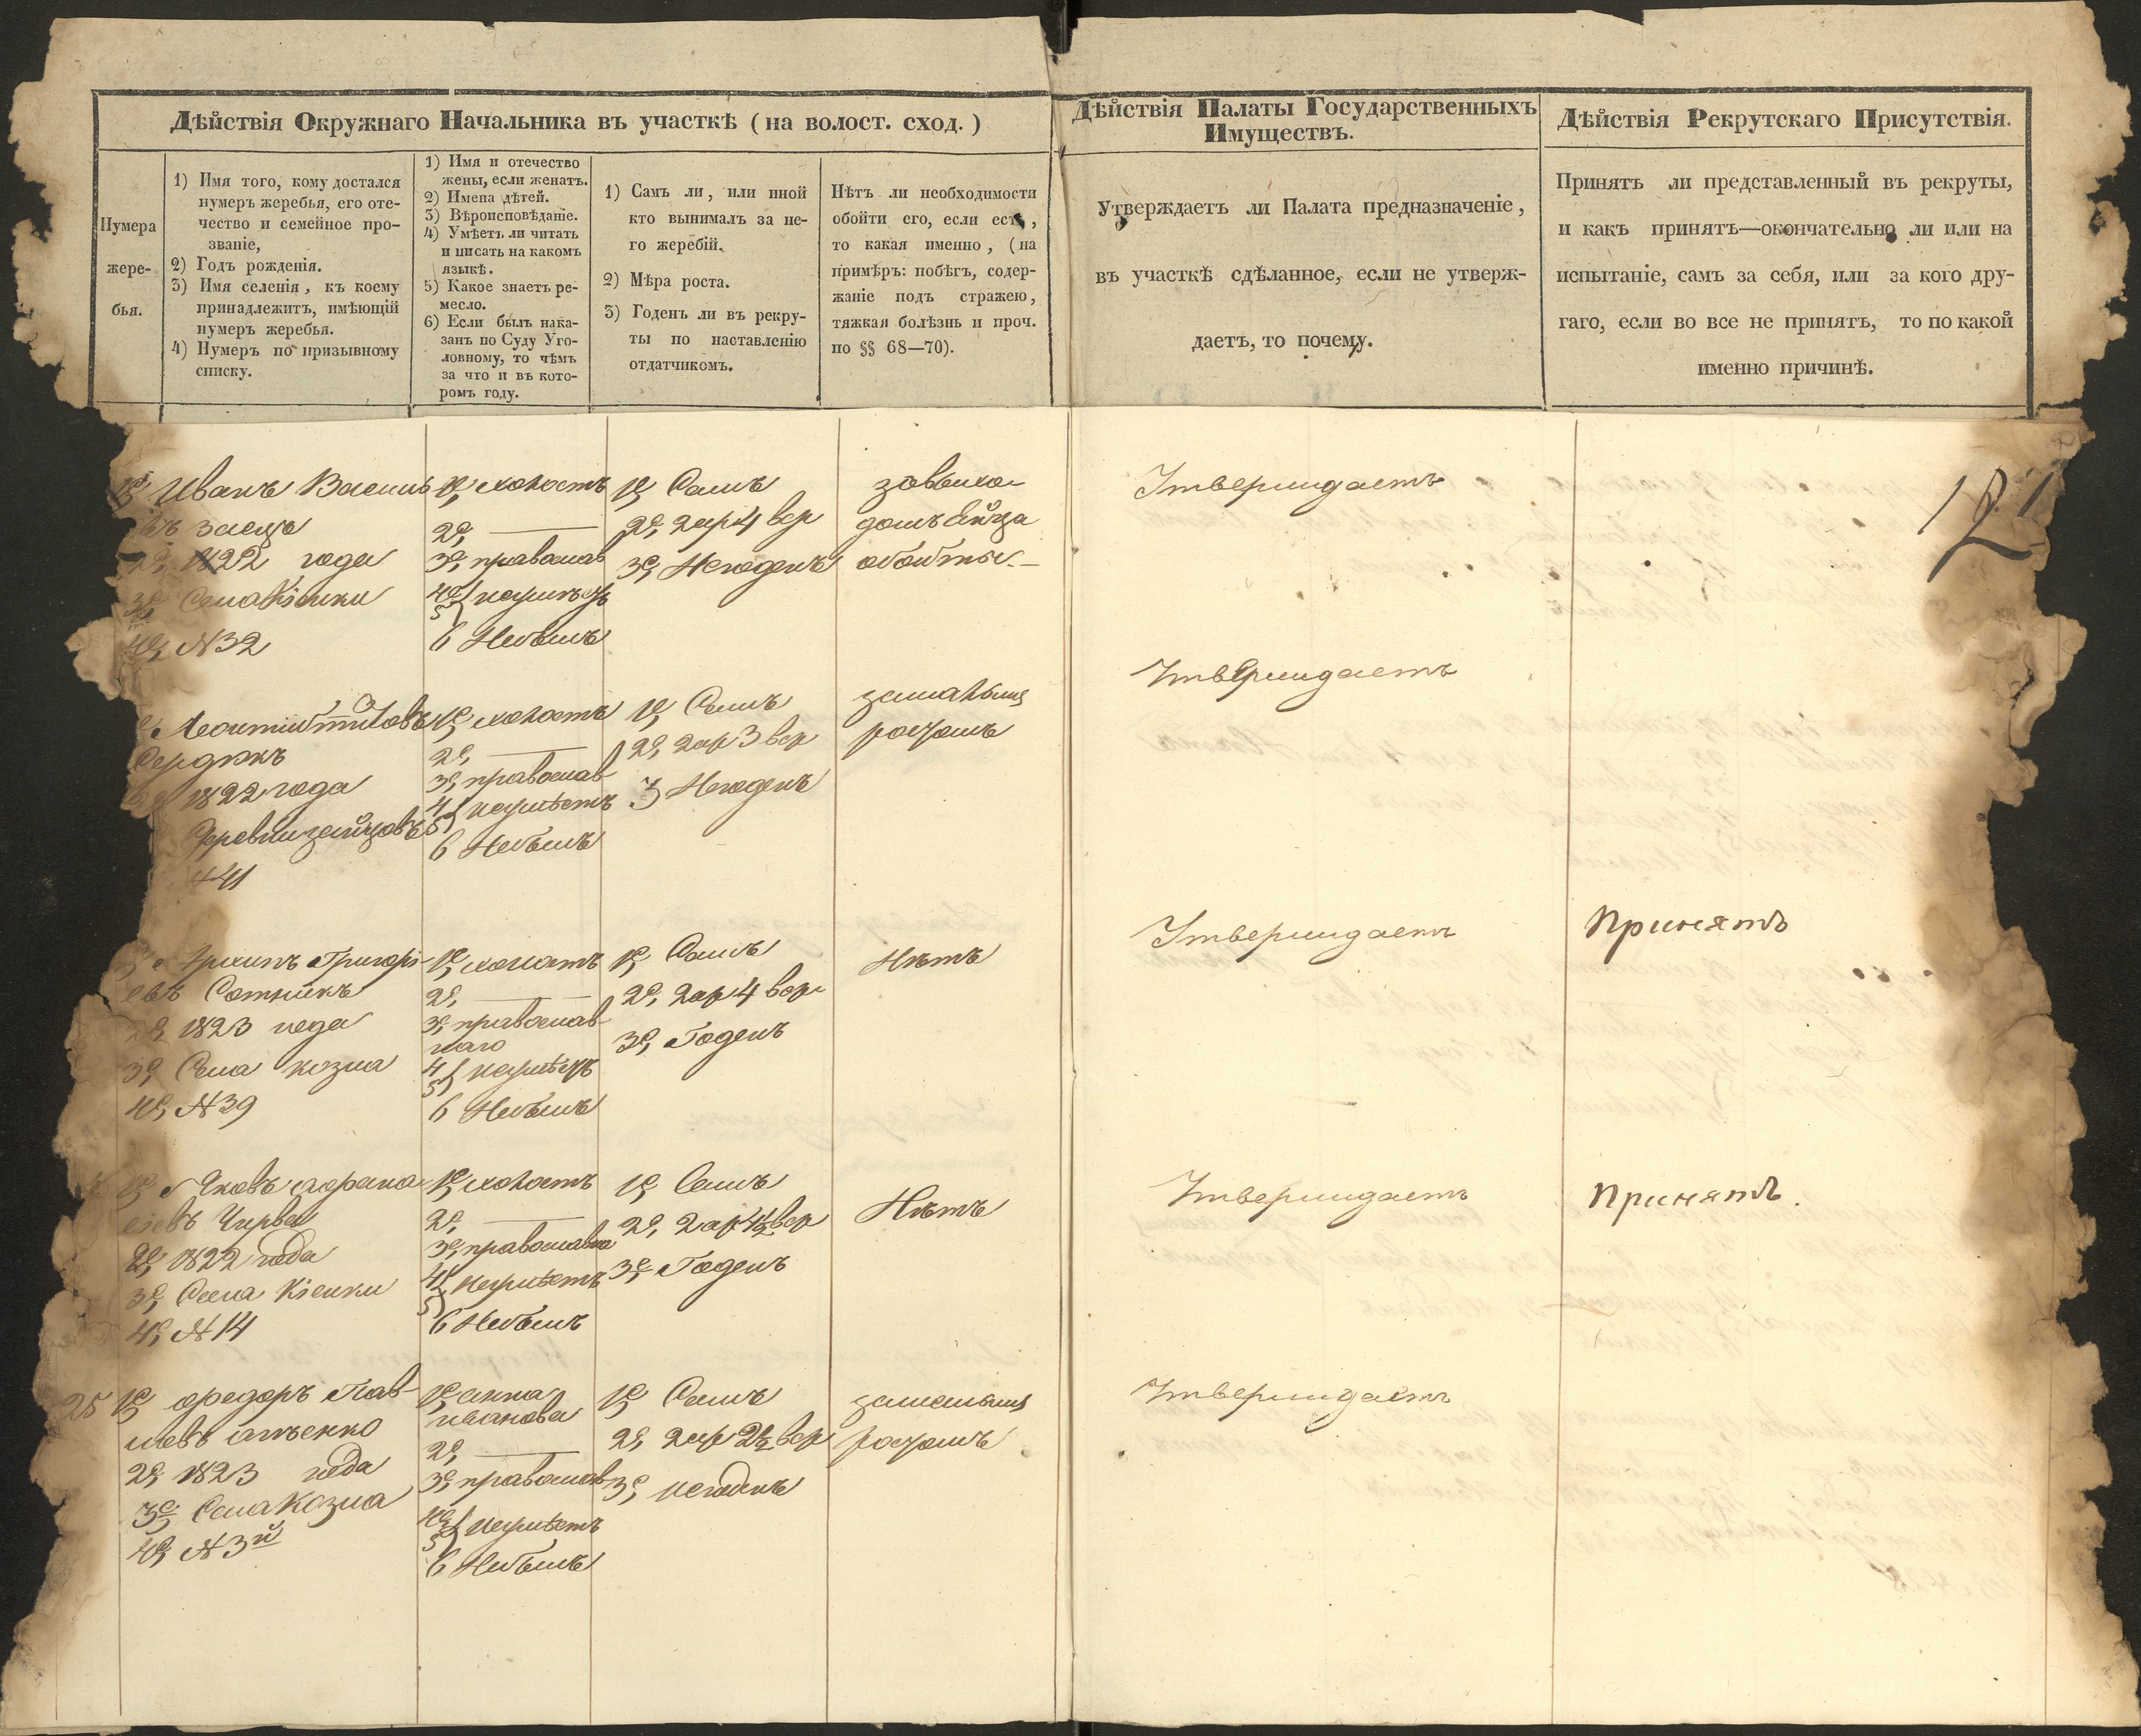 Дѣйствія Окружнаго Начальника въ участкѣ (на волост. сход.)
Нумера
жере-
бья.
1) Имя того, кому достался
нумеръ жеребья, его оте-
чество и семейное про-
званіе,
2) Годъ рожденія.
3) Имя селенія, къ коему
принадлежитъ, имѣющій
нумеръ жеребья.
4) Нумеръ по призывному
списку.
1) Имя и отечество
жены, если женатъ.
2) Имена дѣтей.
3) Вѣроисповѣданіе.
4) Умѣетъ ли читать
и писать на какомъ
языкѣ.
5) Какое знаетъ ре-
месло.
6) Если былъ нака-
занъ по Суду Уго-
ловному, то чѣмъ
за что и въ кото-
ромъ году.
1) Самъ ли, или иной
кто вынималъ за не-
го жеребій.
2) Мѣра роста.
3) Годенъ ли въ рекру-
ты по наставленію
отдатчикомъ.
Нѣтъ ли необходимости
обойти его, если есть,
то какая именно, (на
примѣръ: побѣгъ, содер-
жаніе подъ стражею,
тяжкая болѣзнь и проч.
по §§ 68—70).
Дѣйствія Палаты Государственныхъ
Имуществъ.
Утверждаетъ ли Палата предназначеніе,
въ участкѣ сдѣланное, если не утверж-
даетъ, то почему.
Дѣйствія Рекрутскаго Присутствія.
Принятъ ли представленный въ рекруты,
и какъ принятъ—окончательно ли или на
испытаніе, самъ за себя, или за кого дру-
гаго, если во все не принятъ, то по какой
именно причинѣ.
Иванъ Василь
евъ Заецъ
1822 года
Села Кіенки
4е, N 32
1е, холостъ
2е,
3е, православ
4е
5 неумѣетъ
6 Небылъ
1е, Самъ
2е, 2 ар 4 вер
3е, Негоденъ
обойты.
Утверждаетъ
Леонтій Титовъ
Сердюкъ
1822 года
Деревни
N 41
1е, холостъ
2е,
3е, православ
4
5 неумѣетъ
6 Небылъ
1е, Самъ
2е, 2 ар 3 вер
3 Негоденъ
за малым
ростомъ
Утверждаетъ
Архипъ Григорі-
евъ Сотникъ
1823 года
3е, Села Козла
4е, N 39
1е, холостъ
2е,
3е, православ-
наго
4
5 неумѣетъ
6 Небылъ
1е, Самъ
2е, 2 ар 4 вер
3е, Годенъ
Нѣтъ
Утверждаетъ
Принятъ
1е, Яковъ Афана
сіевъ Чирва
2е, 1822 года
3е, Села Кіенки
4е, N 14
1е, холостъ
2е,
3е, православна
4е
5 неумѣетъ
6 Небылъ
1е, Самъ
2е, 2 ар 4½ вер
3е, Годенъ
Нѣтъ
Утверждаетъ
Принятъ.
25 1е, Федоръ Пав-
ловъ
2е, 1823 года
3е, Села Козла
4е, N 3й
1е, Анна
Иванова
2е,
3е, православ
4е
5 неумѣетъ
6 Небылъ
1е, Самъ
2е, 2 ар 2½ вер
3е, негоденъ
за малым
ростомъ
Утверждаетъ